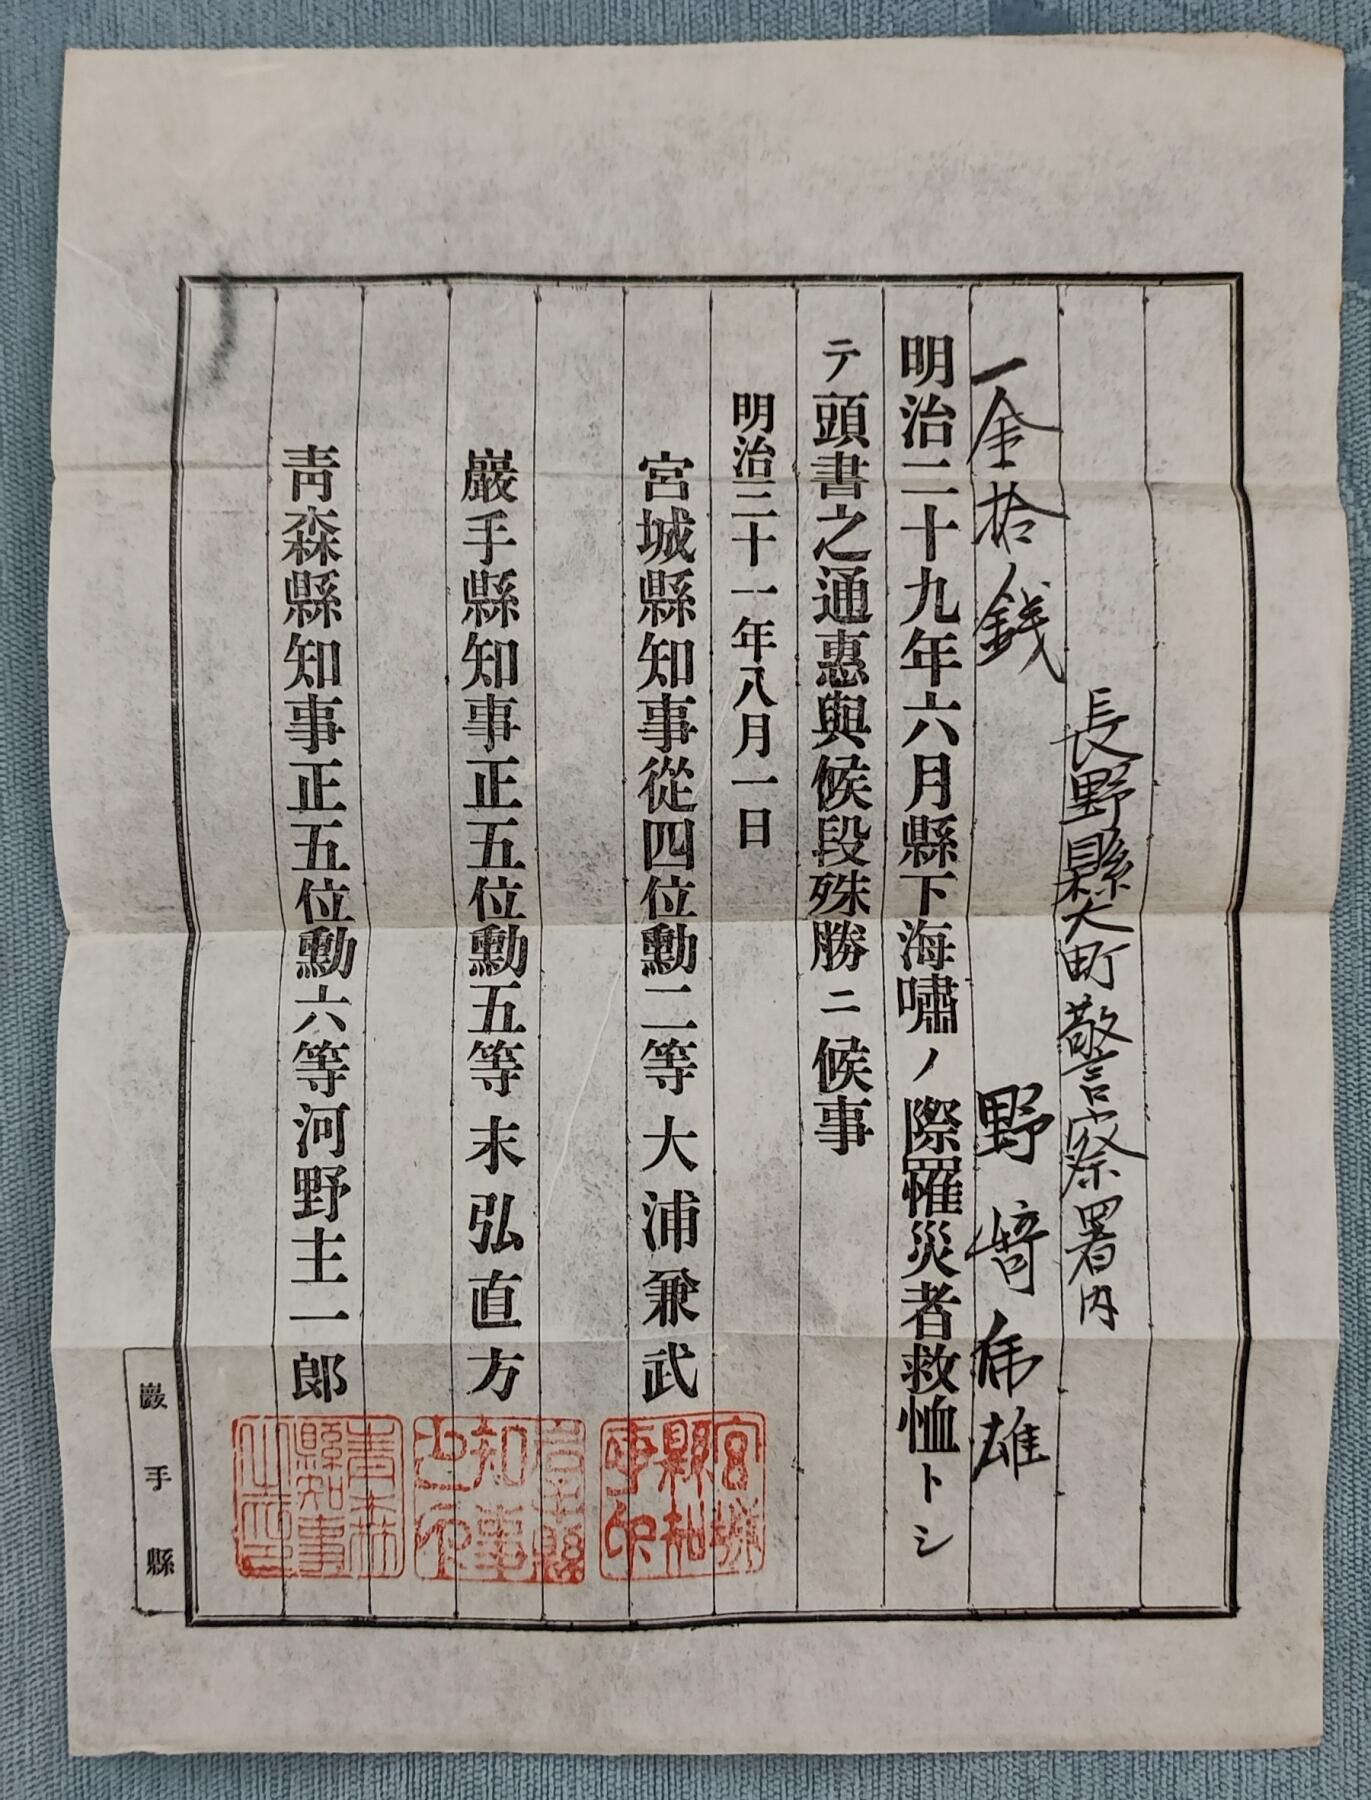 長野縣大町警察署内
一金拾錢
野﨑席雄
明治二十九年六月縣下海嘯ノ際罹災者救恤トシ
テ頭書之通惠與候段殊勝ニ候事
明治三十一年八月一日
宮城縣知事從四位勳二等大浦兼武
宮城縣知事印
巖手縣知事正五位勳五等末弘直方
岩手縣知事之印
靑森縣知事正五位勳六等河野主一郎
青森縣知事之印
巖手縣